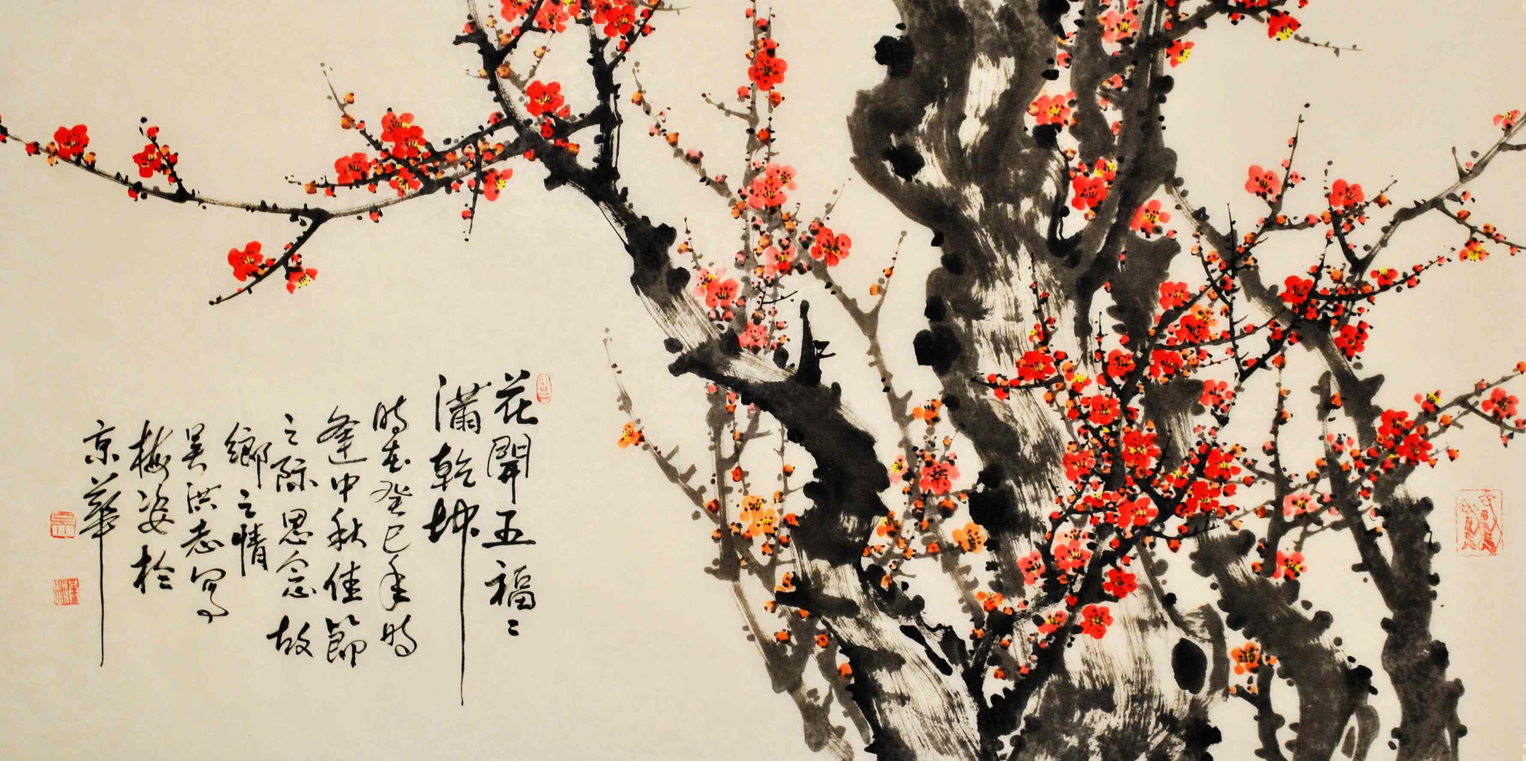 花開五福〻
滿乾坤
時在癸巳年時
逢中秋佳節
之際思念故
鄉之情
吳洪志寫
梅姿於
京華